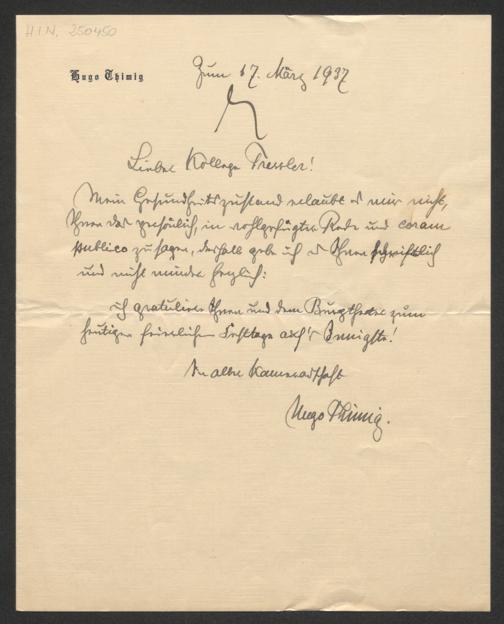 H.I.N. 250450
Hugo Thimig
Zum 17. März 1937
Lieber Kollege Tressler!
Mein Gesundheitszustand erlaubt es mir nicht,
Ihnen das persönlich, in wohlgefügter Rede und coram
publico zu sagen, deshalb gebe ich es Ihnen schriftlich
und nicht minder herzlich:
ich gratuliere Ihnen und dem Burgtheater zum
heutigen feierlichen Festtage auf's Innigste!
In alter Kameradschaft
Hugo Thimig.